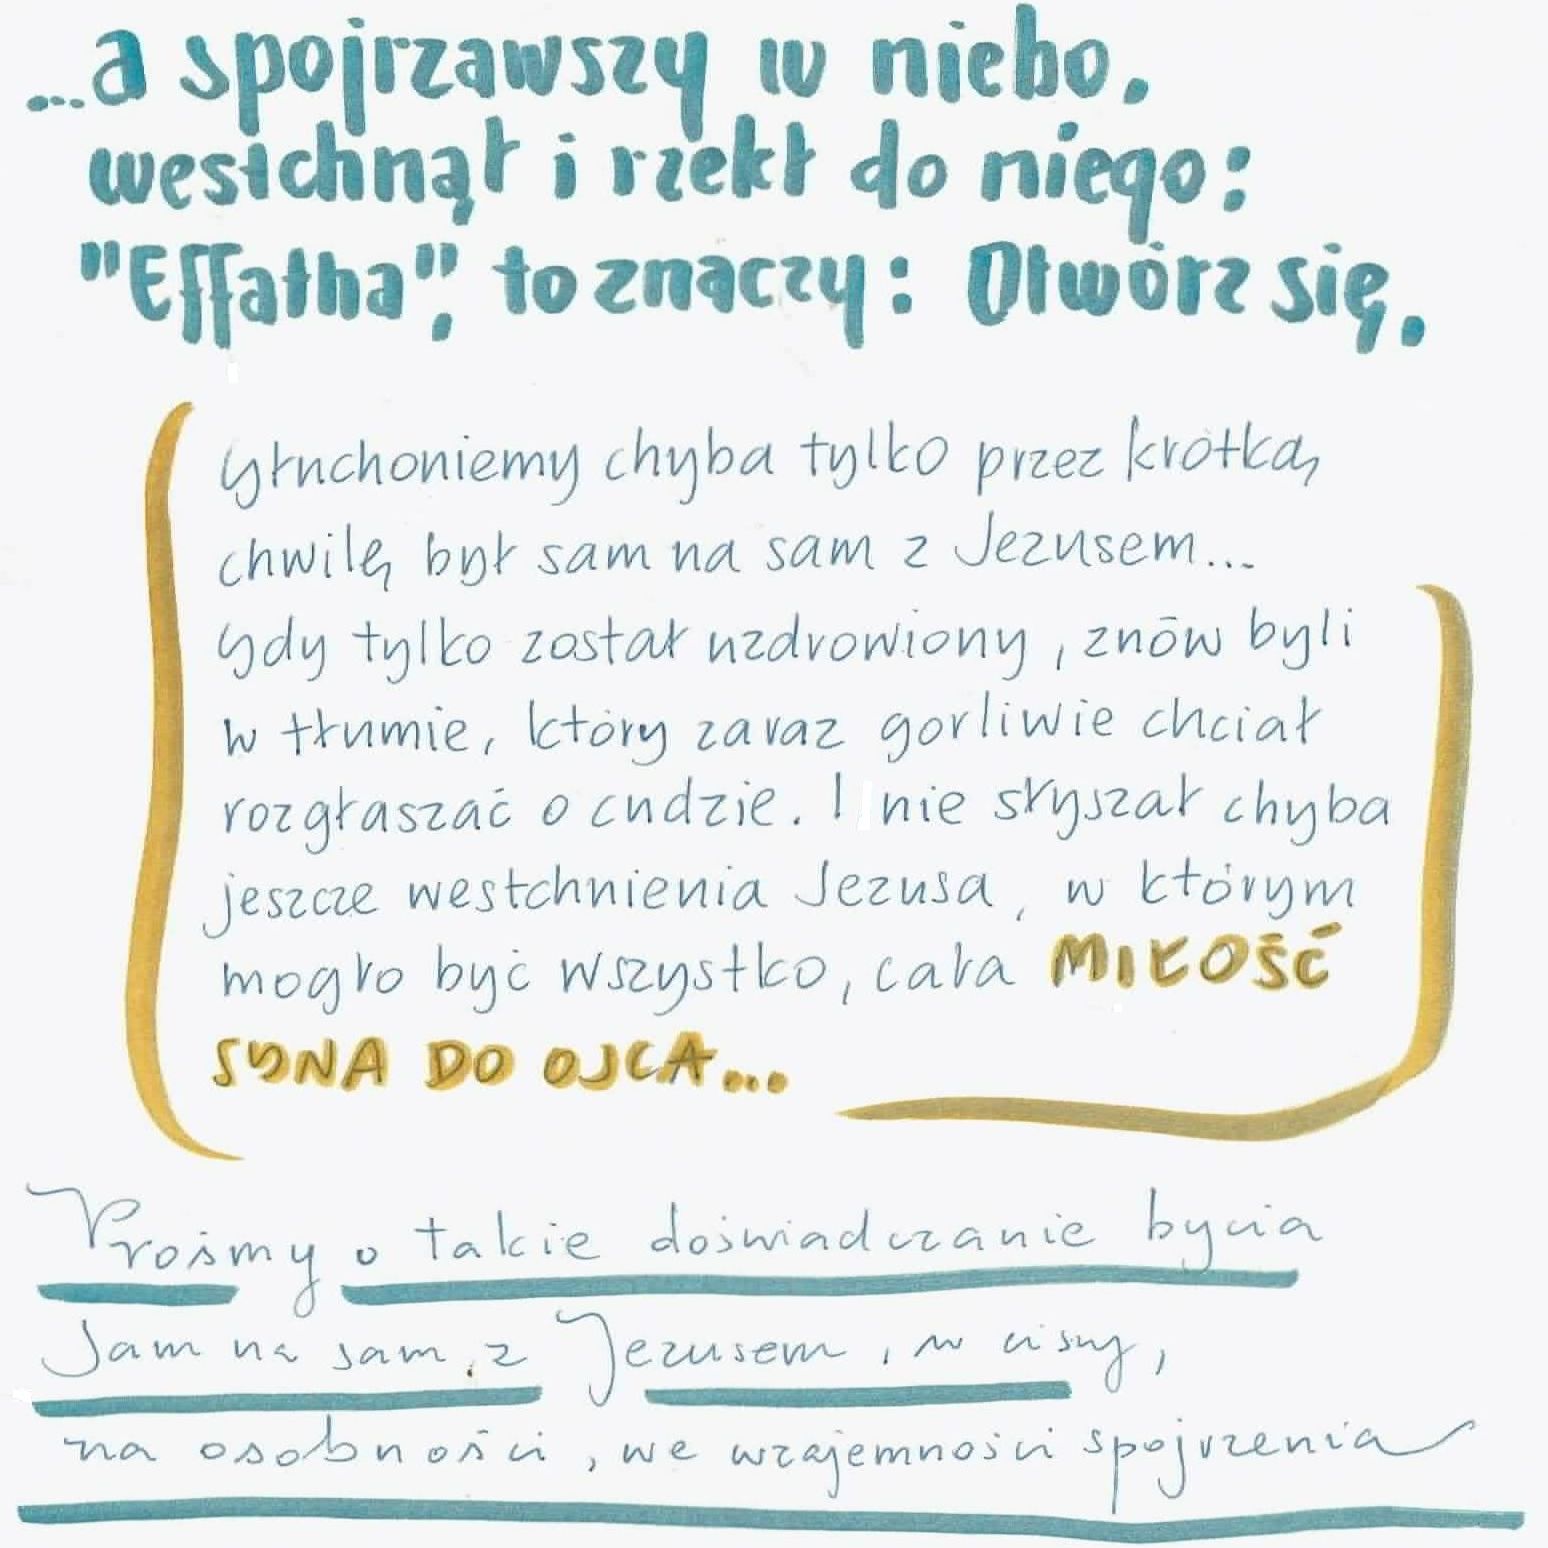 ...a spojrzawszy w niebo,
westchnął i rzekł do niego:
"Effatha", to znaczy: Otwórz się.
Głuchoniemy chyba tylko przez krótką
chwilę był sam na sam z Jezusem...
Gdy tylko został uzdrowiony, znów byli
w tłumie, który zaraz gorliwie chciał
rozgłaszać o cudzie. I nie słyszał chyba
jeszcze westchnienia Jezusa, w którym
mogło być wszystko, cała MIŁOŚĆ
SYNA DO OJCA...
Prośmy o takie doświadczanie bycia
Sam na sam z Jezusem, w ciszy,
na osobności, we wzajemności spojrzenia